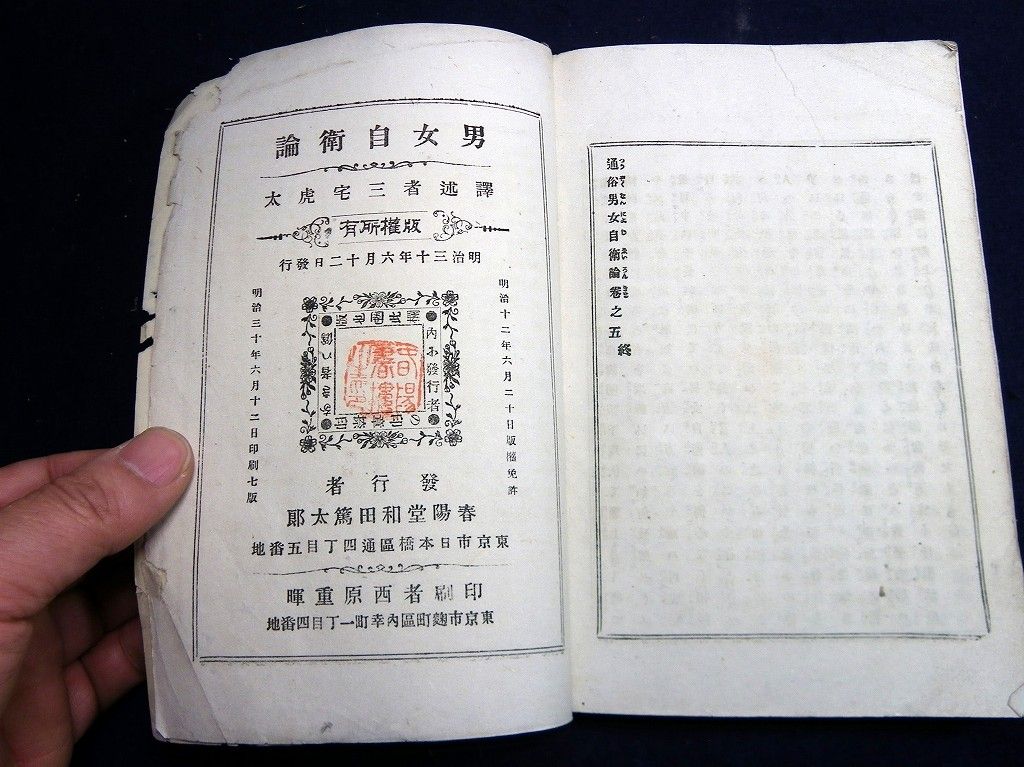 通俗男女自衛論卷之五終
男女自衛論
譯述者三宅虎太
版權所有
明治三十年六月十二日發行
明治十二年六月二十日版權免許
發行者
明治三十年六月十二日印刷七版
發行者
春陽堂和田篤太郎
東京市日本橋區通四丁目五番地
印刷者西原重暉
東京市麴町區內幸町一丁目四番地